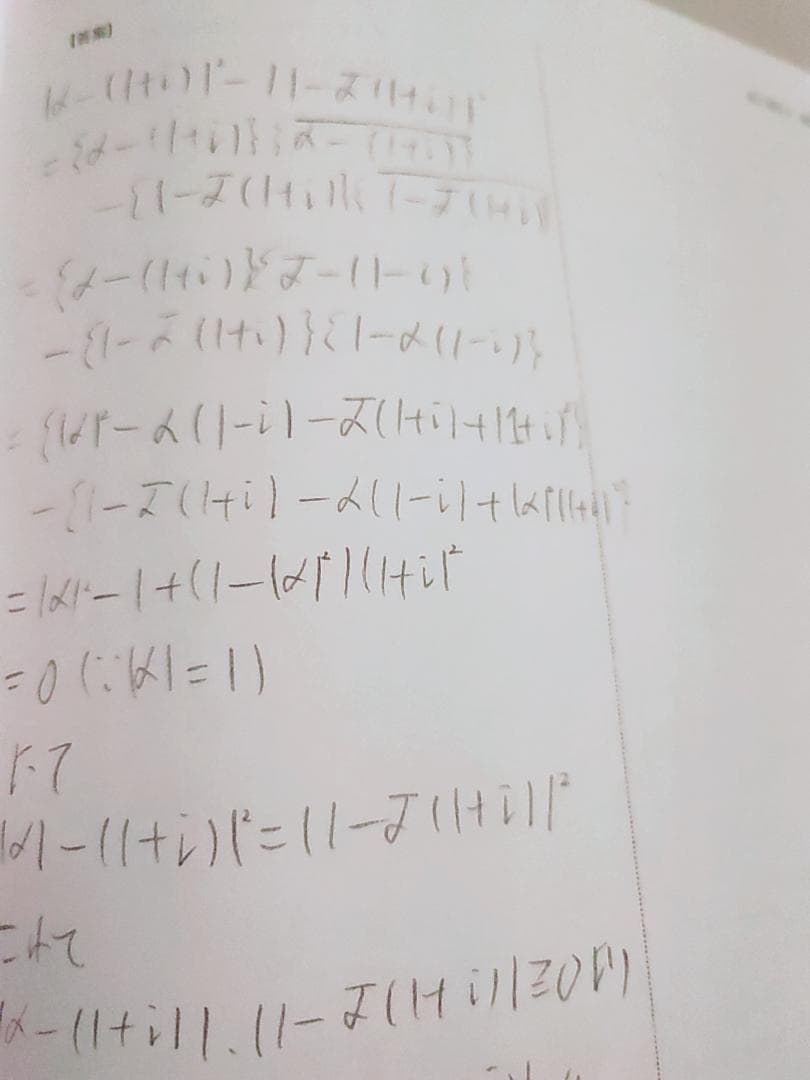 [答案]
|α-(1+i)|²-|1-ᾱ(1+i)|²
={α-(1+i)}{\overline{α-(1+i)}}
-{1-ᾱ(1+i)}{\overline{1-ᾱ(1+i)}}
={α-(1+i)}{ᾱ-(1-i)}
-{1-ᾱ(1+i)}{1-α(1-i)}
={|α|²-α(1-i)-ᾱ(1+i)+|1+i|²}
-{1-ᾱ(1+i)-α(1-i)+|α|²|1+i|²}
=|α|²-1+(1-|α|²)|1+i|²
=0(∵|α|=1)
よって
|α|-(1+i)|²=|1-ᾱ(1+i)|²
|α-(1+i)|、|1-ᾱ(1+i)|≧0より